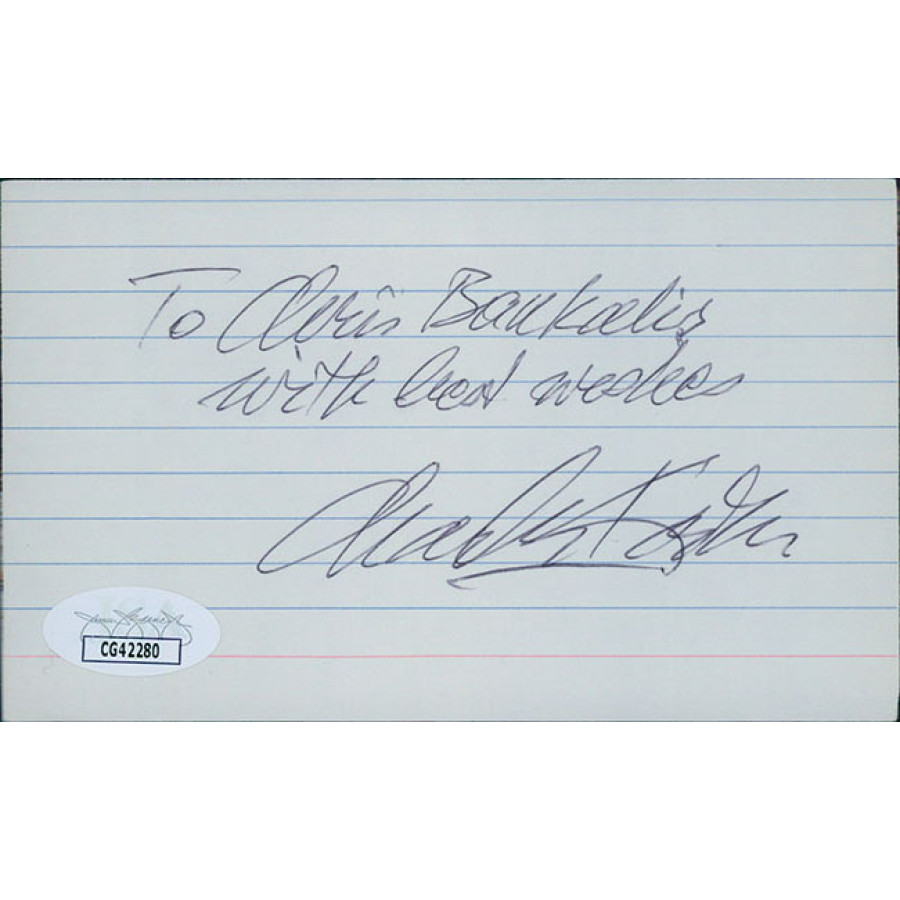 To Chris Baukalis
with best wishes
CG42280